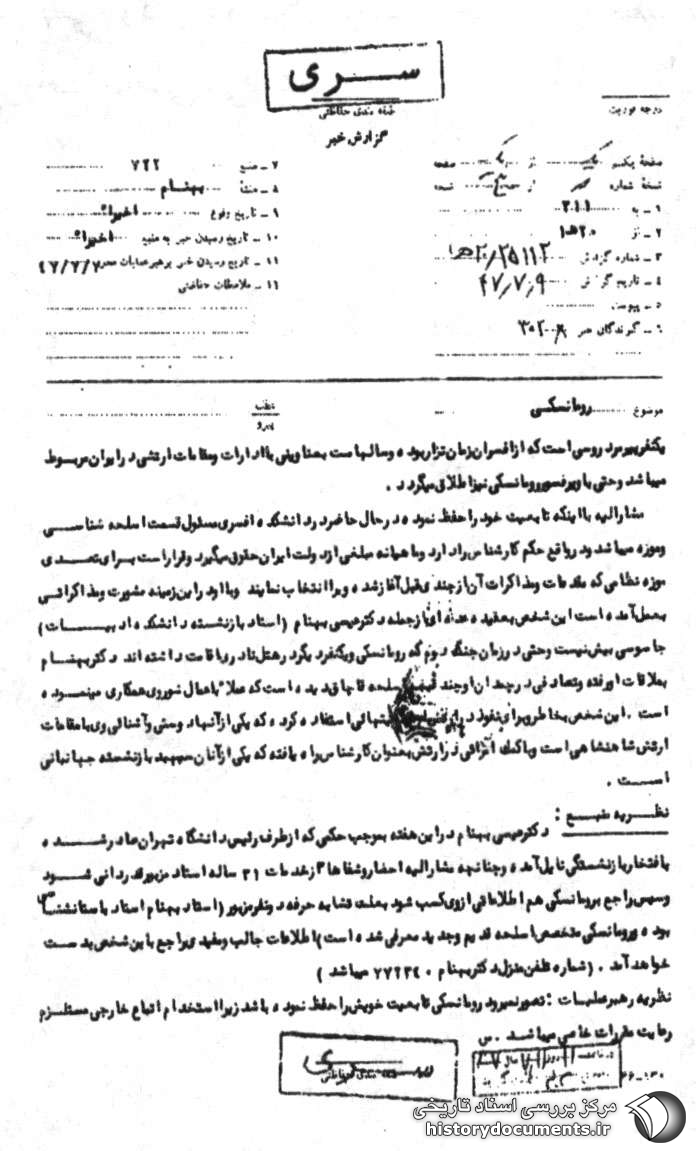 سری
طبقه بندی حفاظتی
گزارش خبر
درجه فوریت
صفحه یکم از یک صفحه
نسخه شماره از نسخه
۱ ـ به ۳۱۱
۲ ـ از ۲۰ ه‍ ۱
۳ ـ شماره گزارش ۲۰/۲۵۱۱۲ ه‍ ۱
۴ ـ تاریخ گزارش ۴۷٫۷٫۹
۵ ـ پیوست
۶ ـ گیرندگان خبر ۳۰۲
۷ ـ منبع ۷۲۲
۸ ـ منشأ بهنام
۹ ـ تاریخ وقوع اخیرا"
۱۰ ـ تاریخ رسیدن خبر به منبع اخیرا"
۱۱ ـ تاریخ رسیدن خبر برهبر عملیات ۴۷/۷/۷
۱۱ ـ ملاحظات حفاظتی
موضوع رومانسکی
عطف
پیرو
یکنفر پیرمرد روسی است که از افسران زمان تزار بوده و سالهاست بعناوینی با ادارات و مقامات ارتشی در ایران مربوط
میباشد و حتی باو پرفسور رومانسکی نیز اطلاق میگردد .
مشارالیه با اینکه تابعیت خود را حفظ نموده در حال حاضر در دانشکده افسری مسئول قسمت اسلحه شناسی
و موزه میباشد و در واقع حکم کارشناس را دارد و ماهیانه مبلغی از دولت ایران حقوق میگیرد و قرار است برای تصدی
موزه نظامی که مقدمات و مذاکرات آن از چندی قبل آغاز شده ویرا انتخاب نمایند و با او در این زمینه مشورت و مذاکراتی
بعمل آمده است این شخص بعقیده عده ای از جمله دکتر عیسی بهنام (استاد بازنشسته دانشکده ادبیات)
جاسوسی بیش نیست و حتی در زمان جنگ دوم که رومانسکی و یکنفر دیگر در هتل نادری اقامت داشته اند دکتر بهنام
بملاقات او رفته و تصادفی در چمدان او چند اسلحه قاچاق دیده است که عملا" با عمال شوروی همکاری مینموده
است . این شخص بخاطر برای نفوذ در استفاده کرده که یکی از آنها و آشنائی وی با مقامات
ارتش شاهنشاهی است و با کمک آنها در ارتش بعنوان کارشناس راه یافته که یکی از آنان سپهبد بازنشسته جهانبانی
است .
نظریه منبع : دکتر عیسی بهنام در این هفته بموجب حکمی که از طرف رئیس دانشگاه تهران صادر شده
بافتخار بازنشستگی نایل آمده و چنانچه مشارالیه احضار و شفاها" از خدمات ۳۱ ساله استاد مزبور قدردانی شود
و سپس راجع برومانسکی هم اطلاعاتی از وی کسب شود بعلت تشابه حرفه دو نفر مزبور (استاد بهنام استاد باستانشناسی
بوده و رومانسکی متخصص اسلحه قدیم و جدید معرفی شده است) اطلاعات جالب و مفیدی راجع باین شخص بدست
خواهد آمد . (شماره تلفن منزل دکتر بهنام ۷۷۲۳۴۰ میباشد )
نظریه رهبر عملیات : تصور نمیرود رومانسکی تابعیت خویش را حفظ نموده باشد زیرا استخدام اتباع خارجی مستلزم
رعایت مقررات خاصی میباشد . س
سری
طبقه بندی حفاظتی
مرکز بررسی اسناد تاریخی
historydocuments.ir